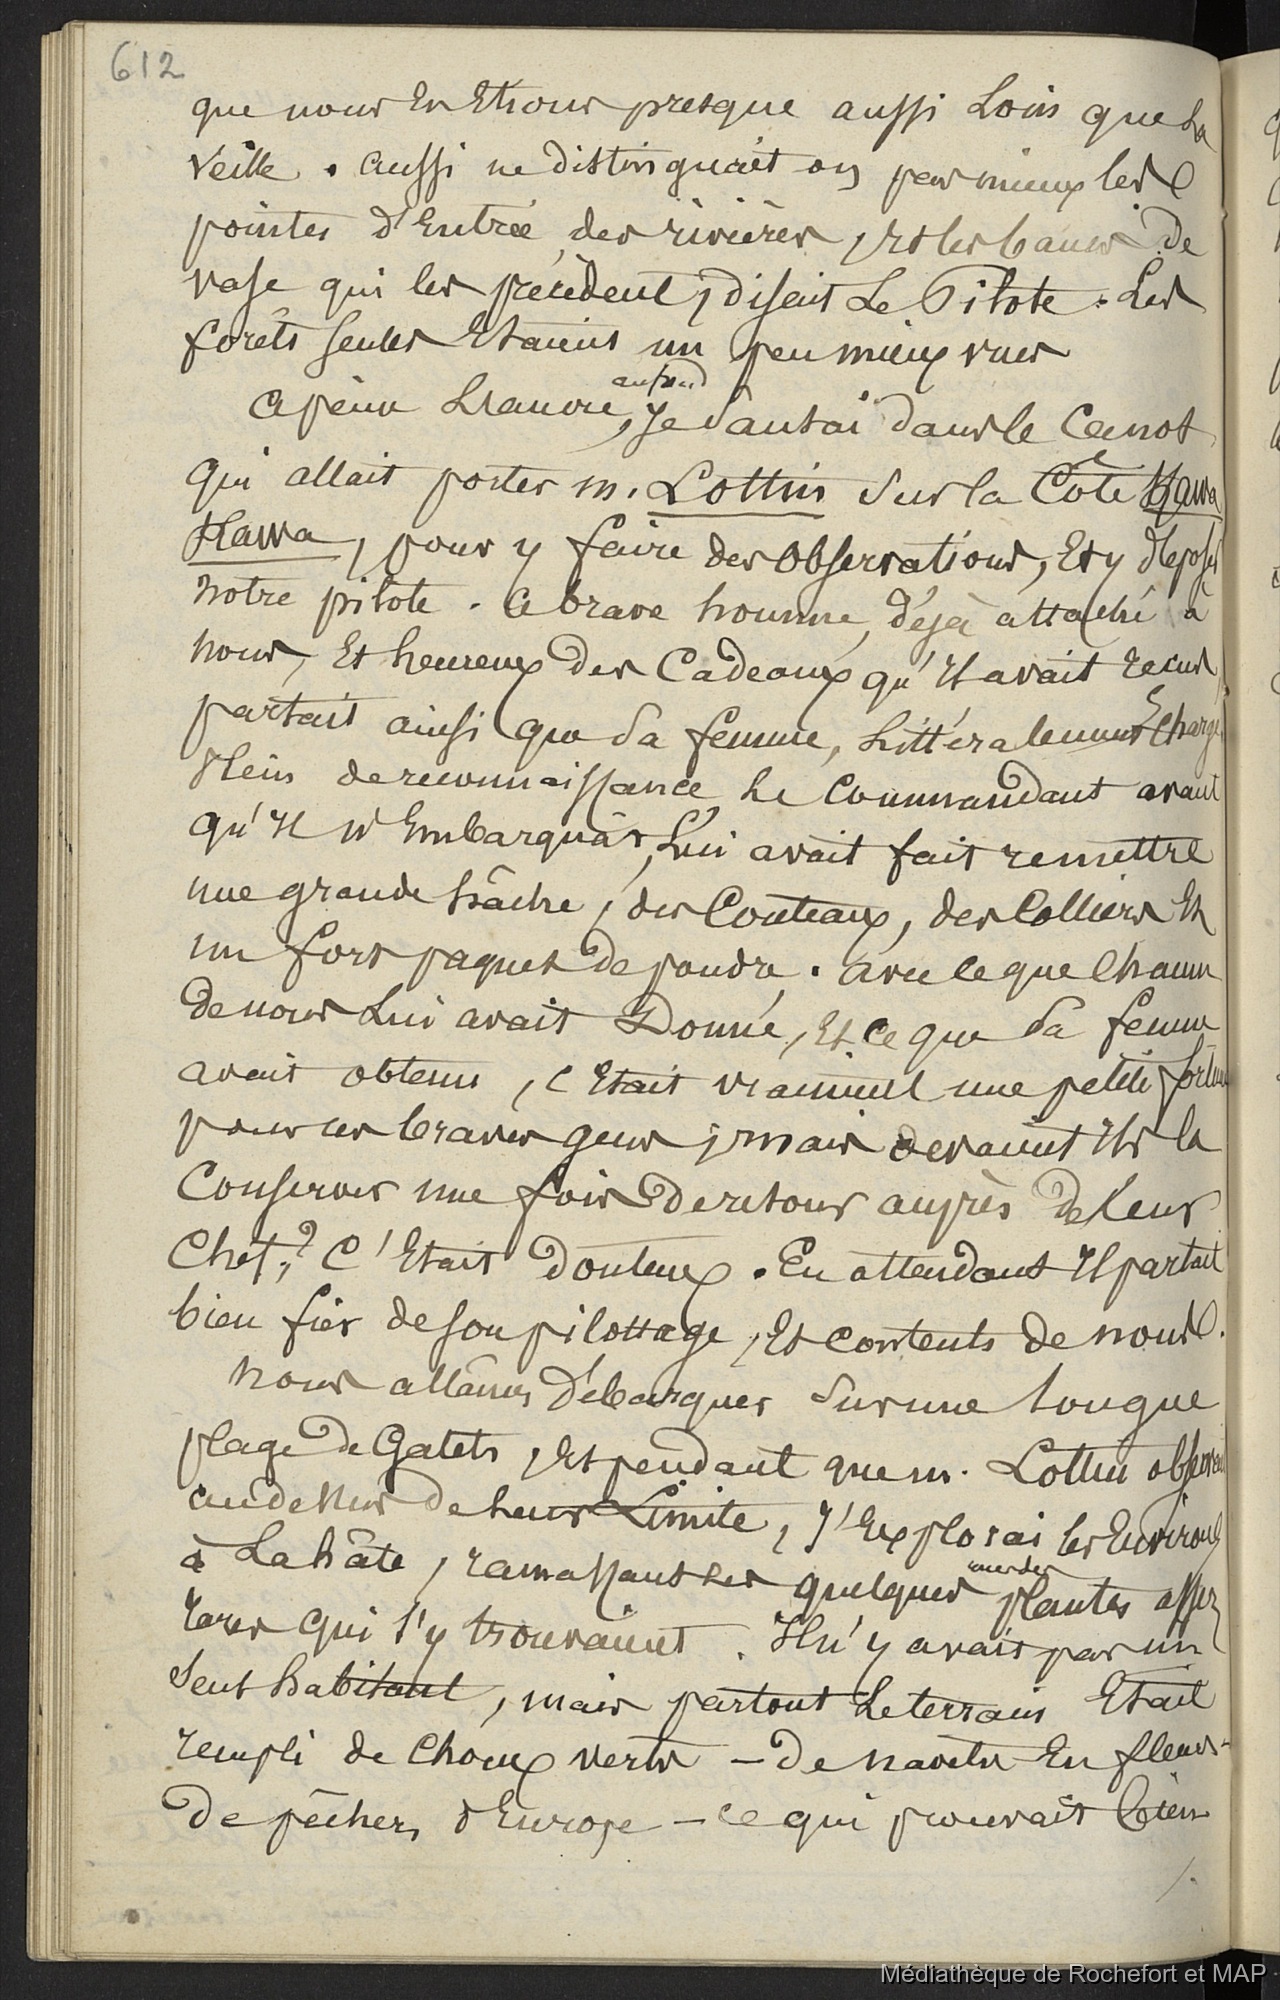 612
que nous En Etions presque aussi Loin que La
veille . aussi ne distinguait on pas mieux les
pointes d'Entrée des rivières, Et les bancs de
vase qui les précèdent, disait Le Pilote . Les
forêts seules Etaient un peu mieux vues
apeine L'ancre, au fond je sautai dans le Canot
qui allait porter m. Lottin sur la Côte Hawa
Hawa, pour y faire des observations, Et y déposer
notre pilote . Ce brave homme, déjà attaché à
nous, Et heureux des Cadeaux qu'Il avait recus
partait ainsi que sa femme, Littéralement Chargé
Plein de reconnaissance, Le Commandant avant
qu'Il n'Embarquât, Lui avait fait remettre
une grande hâche, des Couteaux, des Colliers Et
un fort paquet de poudre . avec ce que Chacun
de nous Lui avait Donné, Et ce que sa femme
avait obtenu, c'Etait vraiment une petite fortune
pour ces braves gens, mais devaient Ils la
Conserver une fois de retour auprès de Leur
Chef,? C'Etait douteux . En attendant Il partait
bien fier de son pilottage, Et contents de nous.
Nous allâmes débarquer sur une longue
plage de Galets, Et pendant que m. Lottin observait
au de leur Limite, J'Explorai les Environs
à La hâte, ramassant Les quelques plantes assez
rares qui s'y trouvaient . Il n'y avait pas un
seul habitant, mais partout Le terrain Etait
rempli de Choux verts – de navets En fleurs –
De pêchers d'Europe – ce qui prouvait bien
/.
Médiathèque de Rochefort et MAP